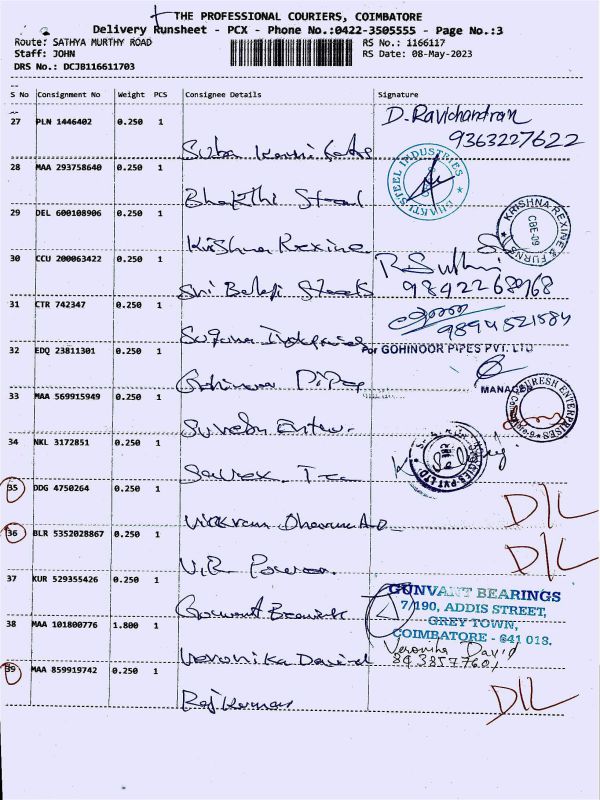 THE PROFESSIONAL COURIERS, COIMBATORE
Delivery Runsheet - PCX - Phone No.:0422-3505555 - Page No.:3
Route: SATHYA MURTHY ROAD RS No.: 1166117
Staff: JOHN RS Date: 08-May-2023
DRS No.: DCJB116611703
S No Consignment No Weight PCS Consignee Details Signature
27 PLN 1446402 0.250 1 D. Ravichandran
9363227622
28 MAA 293758640 0.250 1 BHAKTI STEEL INDUSTRIES
Bhakthi Steel
29 DEL 600108906 0.250 1 KRISHNA REXINE & FURNS CBE-09
Krishna Rexine
30 CCU 200063422 0.250 1
9842268968
Sri Balaji Steels
31 CTR 742347 0.250 1
9894521584
Suguna
32 EDQ 23811301 0.250 1 For GOHINOOR PIPES PVT. LTD
Gohinoor Pipes
MANAGER
33 MAA 569915949 0.250 1 SURESH ENTERPRISES
Suresh Enter.
34 NKL 3172851 0.250 1
35 DDG 4750264 0.250 1 D/L
36 BLR 5352028867 0.250 1 D/L
V.R Power
37 KUR 529355426 0.250 1 GUNVANT BEARINGS
7/190, ADDIS STREET,
GREY TOWN,
COIMBATORE - 641 018.
38 MAA 101800776 1.800 1 Veronika David
8438577601
Veronika David
39 MAA 859919742 0.250 1 D/L
Raj Kumar